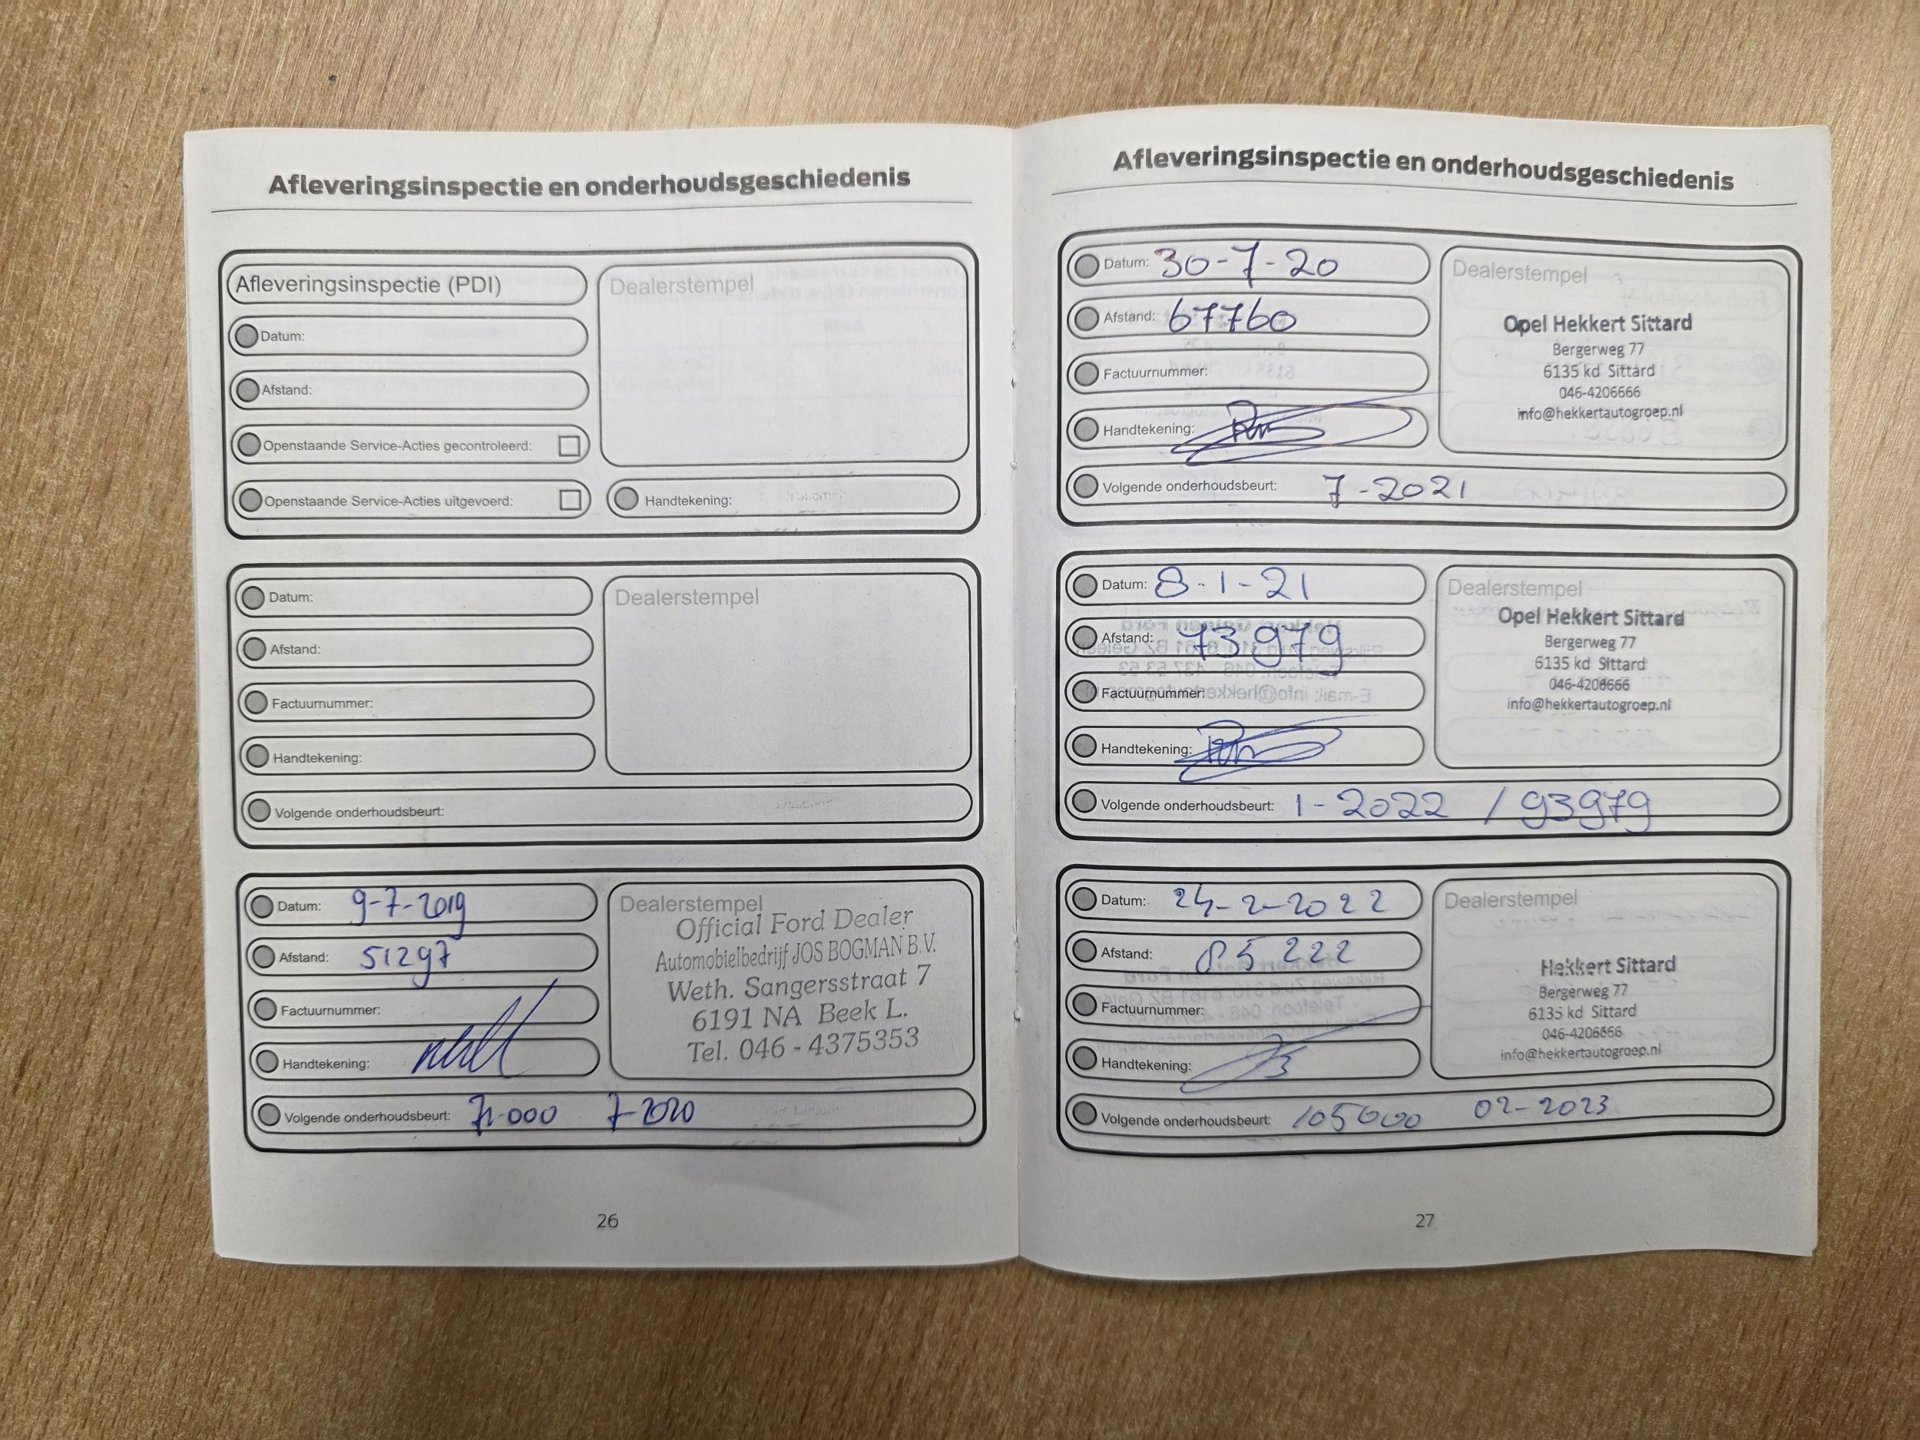 Afleveringsinspectie en onderhoudsgeschiedenis
Afleveringsinspectie (PDI)
Dealerstempel
Datum:
Afstand:
Openstaande Service-Acties gecontroleerd:
Openstaande Service-Acties uitgevoerd:
Handtekening:
Datum:
Dealerstempel
Afstand:
Factuurnummer:
Handtekening:
Volgende onderhoudsbeurt:
Datum: 9-7-2019
Afstand: 51297
Factuurnummer:
Handtekening:
Dealerstempel
Official Ford Dealer
Automobielbedrijf JOS BOGMAN B.V.
Weth. Sangersstraat 7
6191 NA Beek L.
Tel. 046 - 4375353
Volgende onderhoudsbeurt: 71.000 7-2020
26
Afleveringsinspectie en onderhoudsgeschiedenis
Datum: 30-7-20
Afstand: 67760
Factuurnummer:
Handtekening:
Dealerstempel
Opel Hekkert Sittard
Bergerweg 77
6135 kd Sittard
046-4206666
info@hekkertautogroep.nl
Volgende onderhoudsbeurt: 7-2021
Datum: 8-1-21
Afstand: 73979
Factuurnummer:
Handtekening:
Dealerstempel
Opel Hekkert Sittard
Bergerweg 77
6135 kd Sittard
046-4206666
info@hekkertautogroep.nl
Volgende onderhoudsbeurt: 1-2022 / 93979
Datum: 24-2-2022
Afstand: 85222
Factuurnummer:
Handtekening:
Dealerstempel
Hekkert Sittard
Bergerweg 77
6135 kd Sittard
046-4206666
info@hekkertautogroep.nl
Volgende onderhoudsbeurt: 105000 02-2023
27